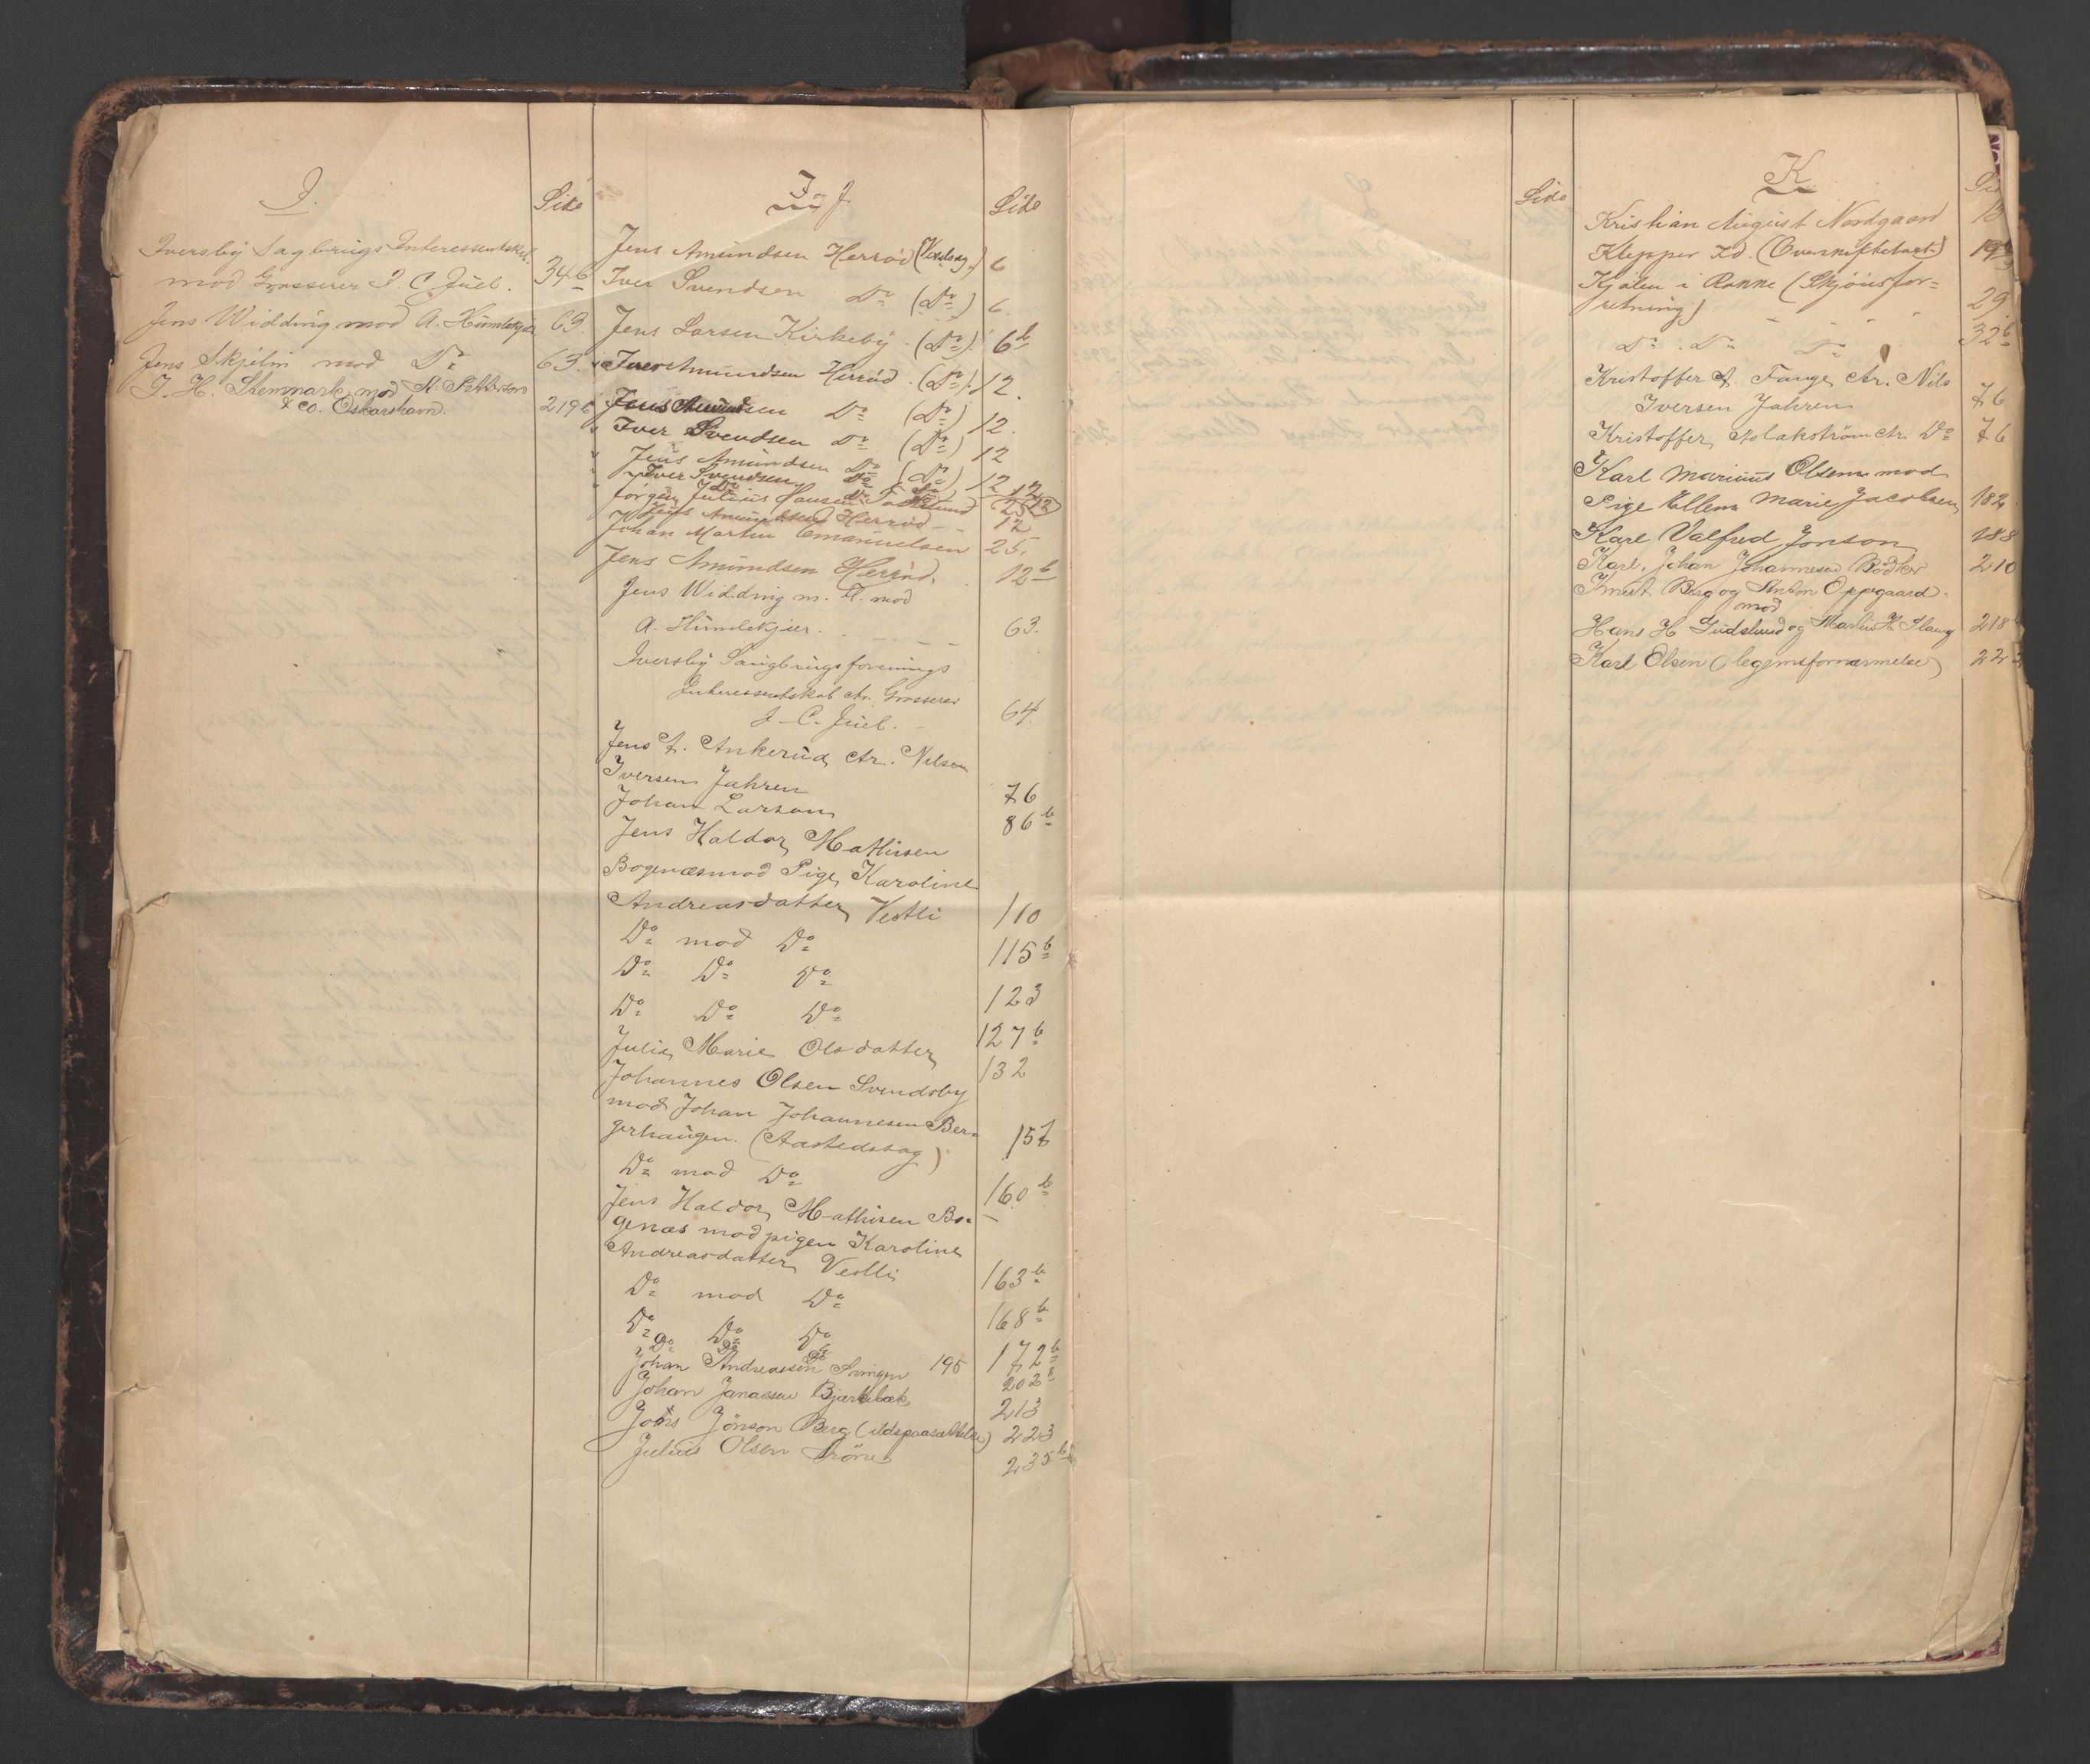 I.
Side
Iversby Sagbrugs Interessentskab
mod Grosserer I. C. Juel. 346
Jens Widding mod A. Humlekjær 63.
Jens Skjelin mod Do 63.
J. H. Stenmark mod A. Petterson
& Co. Oskarshavn. 219b
I & J.
Side
Jens Amundsen Herrød (Vexelsag) 6
Iver Svendsen Do (Do) 6.
Jens Larsen Kirkeby. (Do) 6b
Iver Amundsen Herrød. (Do) 12.
Jens Amundsen Do (Do) 12.
Iver Svendsen Do (Do) 12
Jens Amundsen Do (Do) 12
Iver Svendsen Do Do 12
Jørgen Julius Hansen 25
Jens Amundsen Herrød 12
Johan Martin Emanuelsen 25.
Jens Amundsen Herrød. 12b
Jens Widding m. Fl. mod
A. Humlekjær. 63.
Iversby Saugbrugsforenings
Interessentskab ctr. Grosserer
J. C. Juel. 64.
Jens A. Ankerud ctr. Nilsen
Iversen Jahren 76
Johan Larson 86b
Jens Haldor Mathisen
Bogenæs mod Pige Karoline
Andreasdatter Vestli 110
Do mod Do 115b
Do Do Do 123
Do Do Do 127b
Julie Marie Olsdatter 132
Johannes Olsen Svendsby
mod Johan Johannesen Ber-
gerhaugen. (Aastedssag) 157
Do mod Do 160b
Jens Haldor Mathisen Bo-
genæs mod pigen Karoline
Andreasdatter Vestli 163b
Do mod Do 168b
Do Do Do 172b
Do Do Do 195
Johan Andreassen Svingen 202b
Johan Janassen Bjærkebæk 213
Johs Jönson Berg (ildspaasættelse) 223
Julius Olsen Brøne 235b
Side
K
Kristian August Nordgaard
Klepper Id. (Overskiftetaxt) 19b
Kjølen i Ranne (Skjønsfor-
retning) 29.
Do. Do Do 32b
Kristoffer A. Fange ctr. Nils
Iversen Jahren 76
Kristoffer Aslakström ctr. Do 76
Karl Marinus Olsen mod
Pige Ellen Marie Jacobsen 182
Karl Valfred Jonson 188
Karl Johan Johannesen Bödker 210
Knut Berg og Anton Oppegaard
mod
Hans H Gudslund og Martin H Haug 218
Karl Olsen (legemsfornærmelse) 22